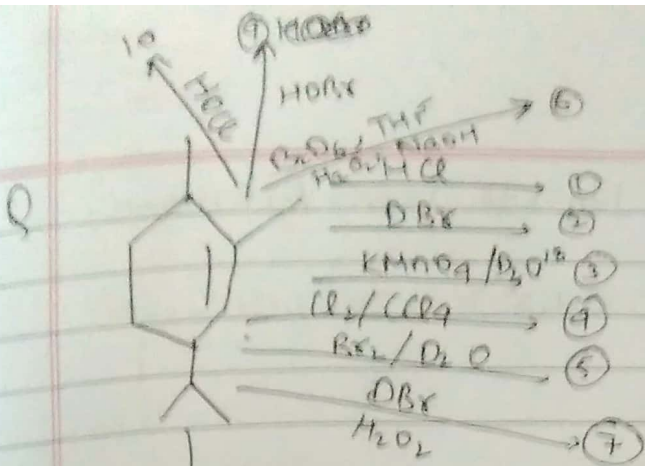 10
⑨
HOCl
HOBr
B2D6/THF
⑥
H2O2/NaOH
Q
HCl
①
DBr
②
KMnO4/D2O18
③
Cl2/CCl4
④
Br2/D2O
⑤
DBr
H2O2
⑦